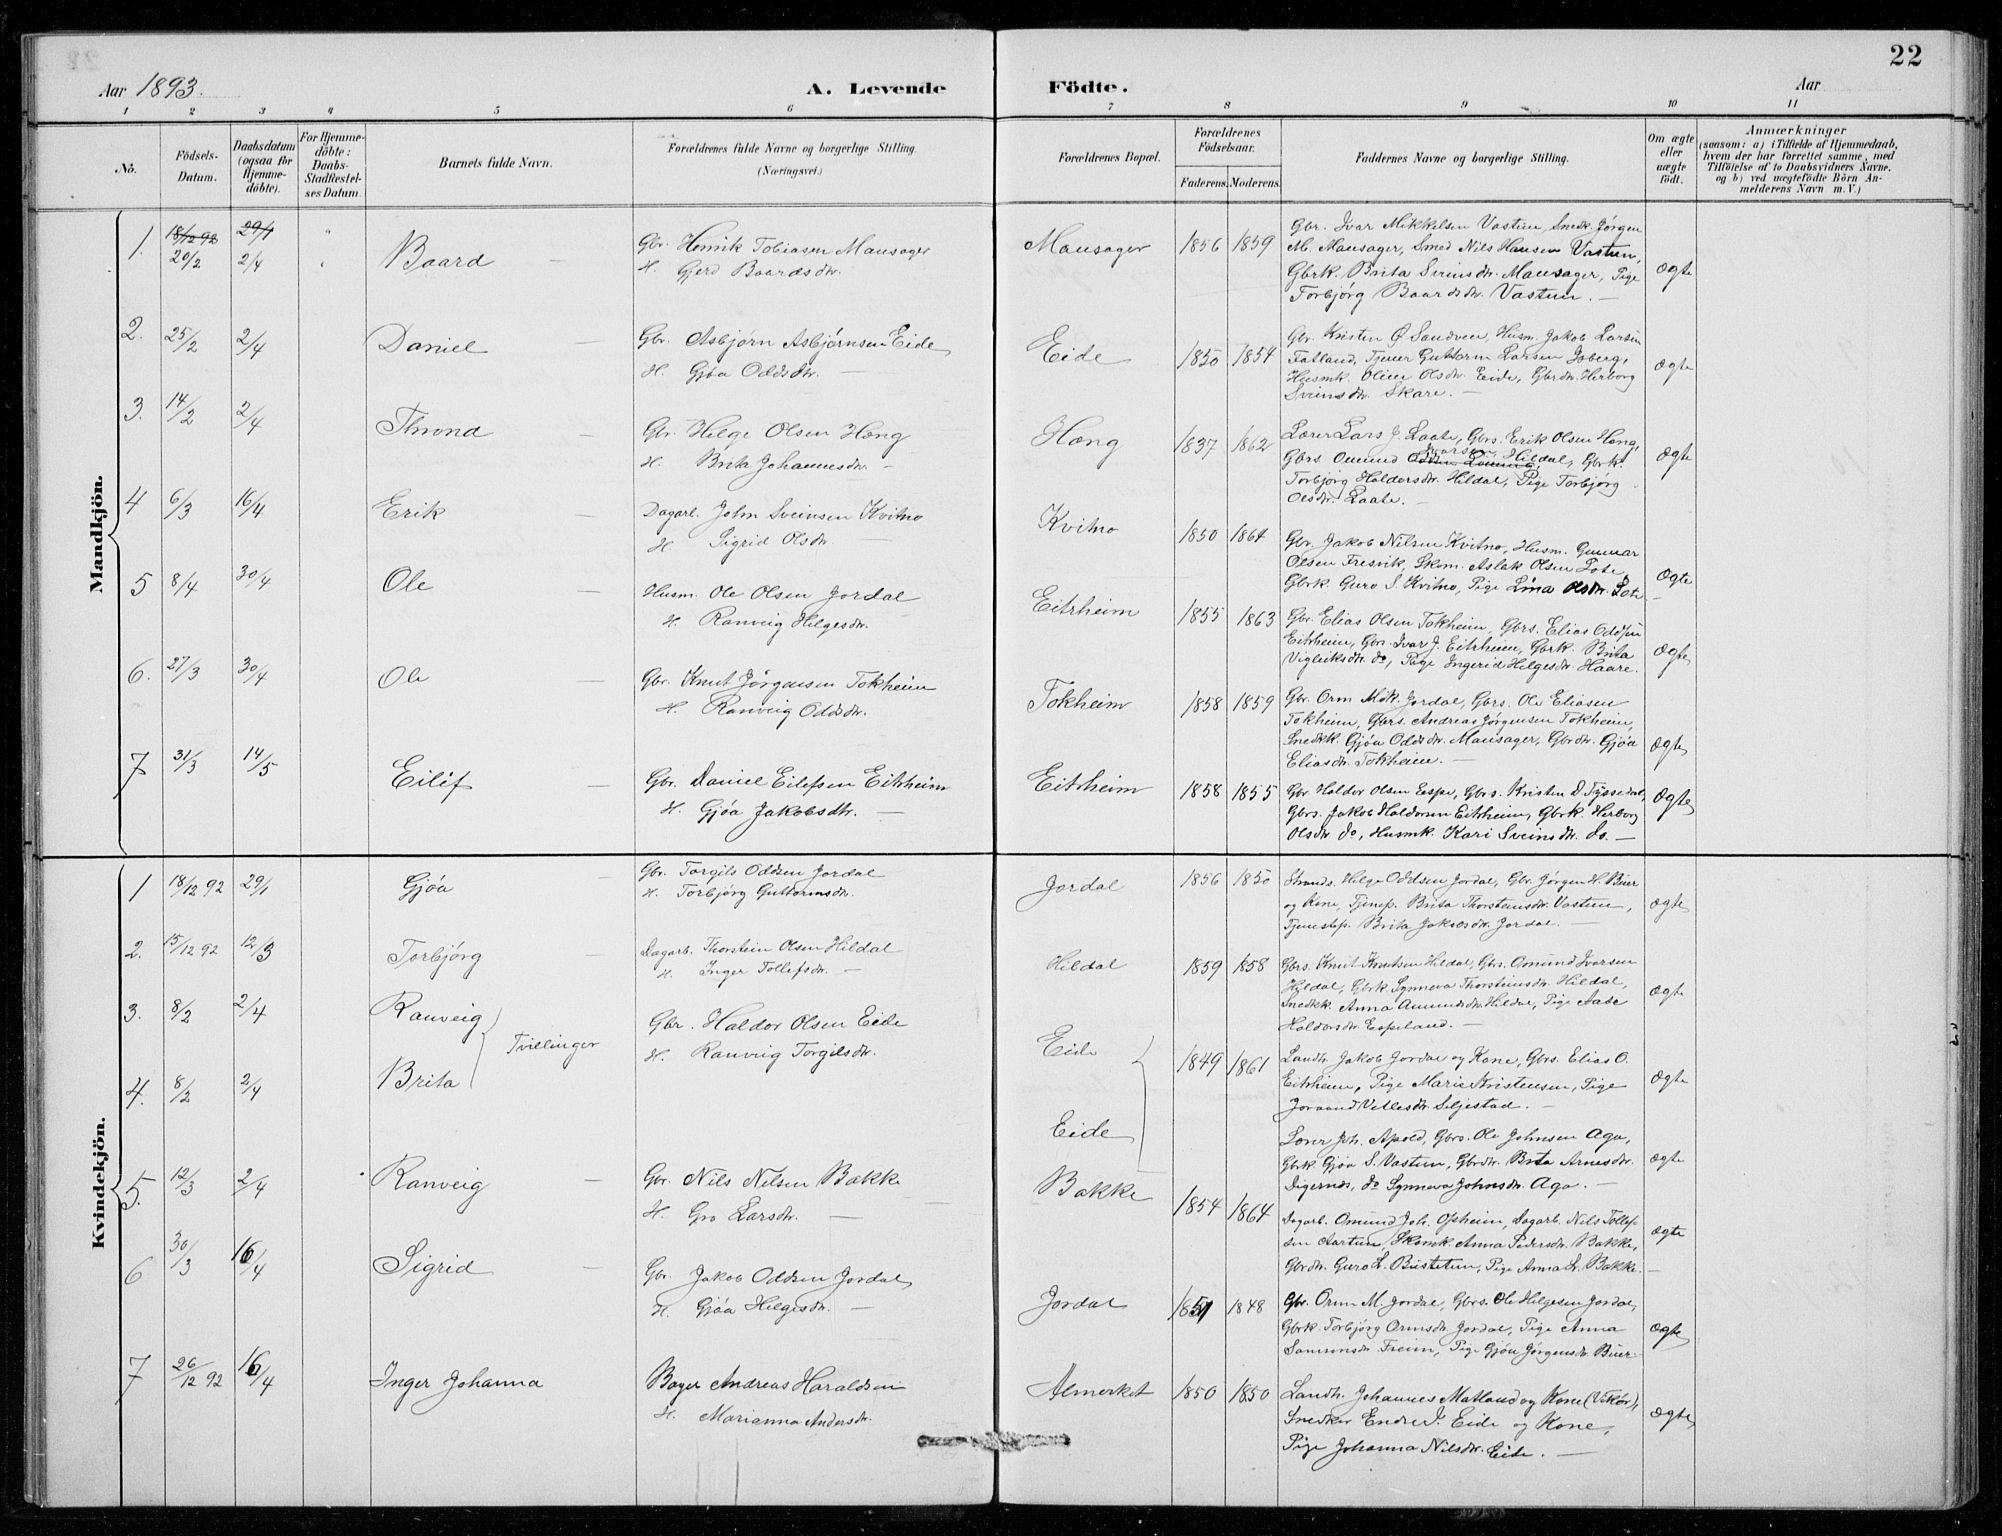 22
Aar 1893.
A. Levende Födte.
Aar
1 2 3 4 5 6 7 8 9 10 11
No.
Födsels-Datum.
Daabsdatum (ogsaa for Hjemme-döbte).
For Hjemme-döbte: Daabs-Stadfæstel-ses Datum.
Barnets fulde Navn.
Forældrenes fulde Navne og borgerlige Stilling. (Næringsvei.)
Forældrenes Bopæl.
Forældrenes Födselsaar.
Faderens. Moderens.
Faddernes Navne og borgerlige Stilling.
Om ægte eller uægte födt.
Anmærkninger
(saasom: a) i Tilfælde af Hjemmedaab, hvem der har forrettet samme, med Tilföielse af to Daabsvidners Navne, og b) ved uægtefödte Börn An-melderens Navn m. V.)
Mandkjön.
1. 18/12 92 29/1
20/2 2/4 Baard
Gbr. Henrik Tobiasen Mausager
H. Gjerd Baardsdtr.
Mausager 1856 1859
Gbr. Ivar Mikkelsen Vastun, Snedk. Jørgen
M. Mausager, Smed Nils Hansen Vastun,
Gbrk. Brita Sveinsdtr. Mausager, Pige
Torbjørg Baardsdtr. Vastun. —
Ægte
2. 25/2 2/4 Daniel
Gbr. Asbjørn Asbjørnsen Eide
H. Gjøa Oddsdtr. —
Eide 1850 1854
Gbr. Kristen Ø Sandven, Husm. Jakob Larsen
Fatland, Tjener Guttorm Larsen Isberg,
Husmk. Oline Olsdtr. Eide, Gbrdtr. Herborg
Sveinsdtr. Skare. —
Ægte
3. 14/2 2/4 Thrond
Gbr. Helge Olsen Hæng
H. Brita Johannesdtr. —
Hæng 1837 1862
Lærer Lars J. Laate, Gbrs. Erik Olsen Hæng,
Gbrs. Omund Ivarsen Hildal, Gbrk.
Torbjørg Haldorsdtr. Hildal, Pige Torbjørg
Olsdtr. Laate. —
Ægte
4 6/3 16/4 Erik
Dagarb. John Sveinsen Kvitno
H. Sigrid Olsdtr.
Kvitno 1850 1864
Gbr. Jakob Nilsen Kvitno, Husm. Gunnar
Olsen Fresvik, Skom. Aslak Olsen Lote,
Gbrk. Guro S. Kvitno, Pige Lina Olsdtr. Lote
Ægte
5 8/4 30/4 Ole
Husm. Ole Olsen Jordal
H. Ranveig Helgesdtr.
Eitrheim 1855 1863
Gbr. Elias Olsen Tokheim, Gbrs. Elias Oddsen
Eitrheim, Gbrs. Ivar J. Eitrheim, Gbrk. Brita
Vigleiksdtr. do, Pige Ingerid Helgesdtr. Haare.
Ægte
6. 27/3 30/4 Ole
Gbr. Knut Jørgensen Tokheim
H. Ranveig Oddsdtr.
Tokheim 1858 1859
Gbr. Orm Mdk. Jordal, Gbrs. Ole Eliasen
Tokheim, Gbrs. Andreas Jørgensen Tokheim,
Snedkk. Gjøa Oddsdtr. Mausager, Gbrdtr. Gjøa
Eliasdtr. Tokheim. —
Ægte
7 31/3 14/5 Eilif
Gbr. Daniel Eilefsen Eitrheim
H. Gjøa Jakobsdtr. —
Eitrheim 1858 1855
Gbr. Haldor Olsen Espe, Gbrs. Kristen D. Tyssedal,
Gbrs. Jakob Haldorsen Eitrheim, Gbrk. Herborg
Olsdtr. do, Husmk. Kari Sveinsdtr. do. —
Ægte
Kvindekjön.
1 18/12 92 29/1 Gjøa
Gbr. Torgils Oddsen Jordal
H. Torbjørg Guttormsdtr.
Jordal 1856 1850
Strands. Helge Oddsen Jordal, Gbr. Jørgen H. Buer
og Kone, Tjenep. Brita Thorsteinsdtr. Vastun,
Tjenestep. Brita Jakobsdtr. Jordal. —
Ægte
2. 15/12 92 12/3 Torbjørg
Dagarb. Thorstein Olsen Hildal
H. Inger Tollefsdtr. —
Hildal 1859 1858
Gbrs. Knut Knutsen Hildal, Gbrs. Omund Ivarsen
Hildal, Gbrk. Synneva Thorsteinsdtr. Hildal,
Snedkk. Anna Amundsdtr. Hildal, Pige Aase
Haldorsdtr. Espeland. —
Ægte
3. 8/2 2/4 Ranveig
4. 8/2 2/4 Brita
Tvillinger
Gbr. Haldor Olsen Eide
H. Ranveig Torgilsdtr.
Eide 1849 1861
Landh. Jakob Jordal og Kone, Gbrs. Elias O.
Eitrheim, Pige Marie Kristensen, Pige
Joraand Vetlesdtr. Seljestad. —
Ægte
Eide
Lærer Joh. Apold, Gbrs. Ole Johnsen Aga,
Gbrk. Gjøa S. Vastun, Gbrdtr. Brita Arnesdtr.
Digernes, do Synneva Johnsdtr. Aga. —
Ægte
5. 12/3 2/4 Ranveig
Gbr. Nils Nilsen Bakke
H. Gro Larsdtr. —
Bakke 1854 1864
Dagarb. Omund Joh. Opheim, Dagarb. Nils Tollef-
sen Aartun, Skomk. Anna Pedersdtr. Bakke,
Gbrdtr. Guro L. Bustetun, Pige Anna L. Bakke. —
Ægte
6 30/3 16/4 Sigrid
Gbr. Jakob Oddsen Jordal
H. Gjøa Helgesdtr. —
Jordal 1851 1848
Gbr. Orm M. Jordal, Gbrs. Ole Helgesen Jordal,
Gbrk. Torbjørg Ormsdtr. Jordal, Pige Anna
Samsonsdtr. Freim, Pige Gjøa Jørgensdtr. Buer
Ægte
7 26/12 92 16/4 Inger Johanna
Bager Andreas Haraldsen
H. Marianna Andersdtr.
Almerket 1850 1850
Landh. Johannes Matland og Kone (Vikør),
Snedker Endre J. Eide og Kone,
Pige Johanna Nilsdtr. Eide. —
Ægte